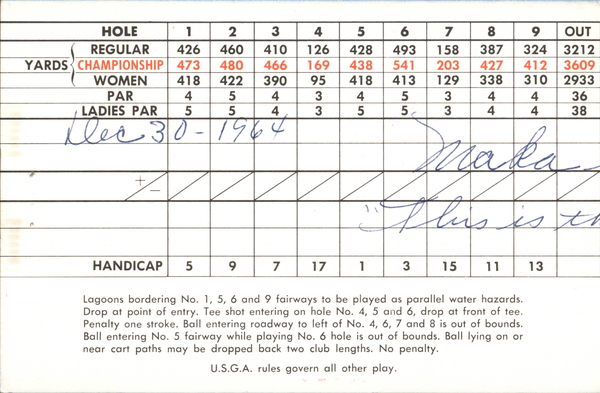 HOLE 1 2 3 4 5 6 7 8 9 OUT
REGULAR 426 460 410 126 428 493 158 387 324 3212
YARDS CHAMPIONSHIP 473 480 466 169 438 541 203 427 412 3609
WOMEN 418 422 390 95 418 413 129 338 310 2933
PAR 4 5 4 3 4 5 3 4 4 36
LADIES PAR 5 5 4 3 5 5 3 4 4 38
Dec 30-1964
Maka
+
−
"This is th
HANDICAP 5 9 7 17 1 3 15 11 13
Lagoons bordering No. 1, 5, 6 and 9 fairways to be played as parallel water hazards.
Drop at point of entry. Tee shot entering on hole No. 4, 5 and 6, drop at front of tee.
Penalty one stroke. Ball entering roadway to left of No. 4, 6, 7 and 8 is out of bounds.
Ball entering No. 5 fairway while playing No. 6 hole is out of bounds. Ball lying on or
near cart paths may be dropped back two club lengths. No penalty.
U.S.G.A. rules govern all other play.